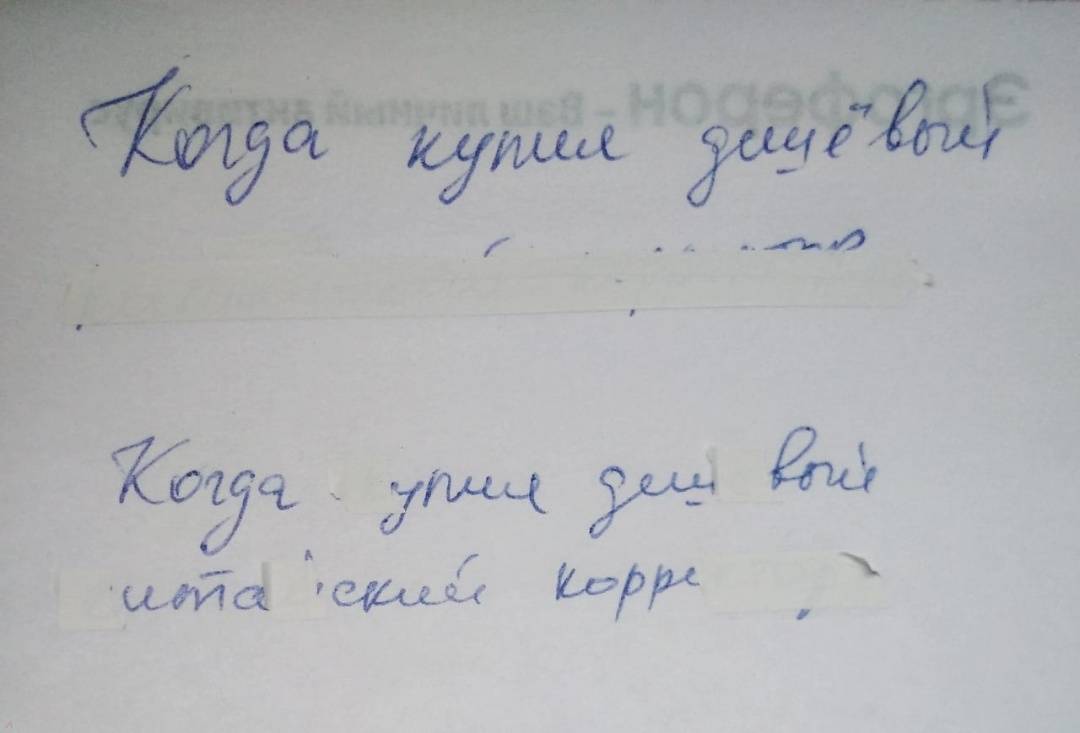 Эргоферон - ваш личный антивирус
Когда купил дешёвый
Когда упил деш вый
ита ский корре